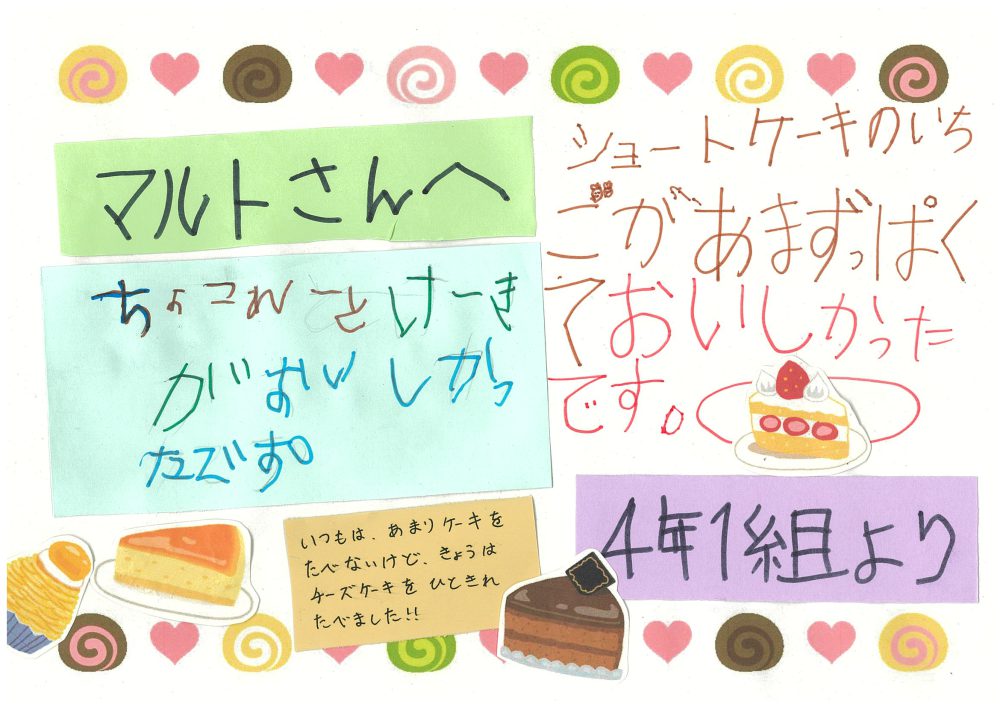 マルトさんへ
ちょこれーとけーき
がおいしかっ
たです。
ショートケーキのいち
ごがあまずっぱく
ておいしかった
です。
いつもは、あまりケーキを
たべないけど、きょうは
チーズケーキをひときれ
たべました!!
4年1組より